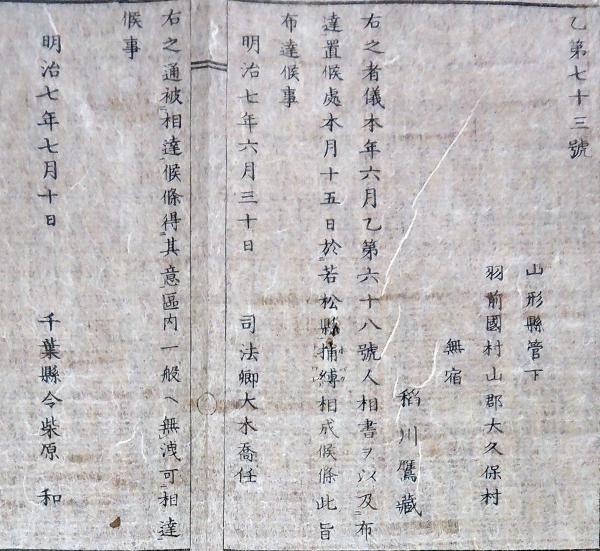 乙第七十三號
山形縣管下
羽前國村山郡大久保村
無宿
稻川鷹藏
右之者儀本年六月乙第六十八號人相書ヲ以及布
達置候處本月十五日於若松縣捕縛相成候條此旨
布達候事
明治七年六月三十日 司法卿大木喬任
右之通被相達候條得其意區内一般ヘ無洩可相達
候事
明治七年七月十日 千葉縣令柴原 和